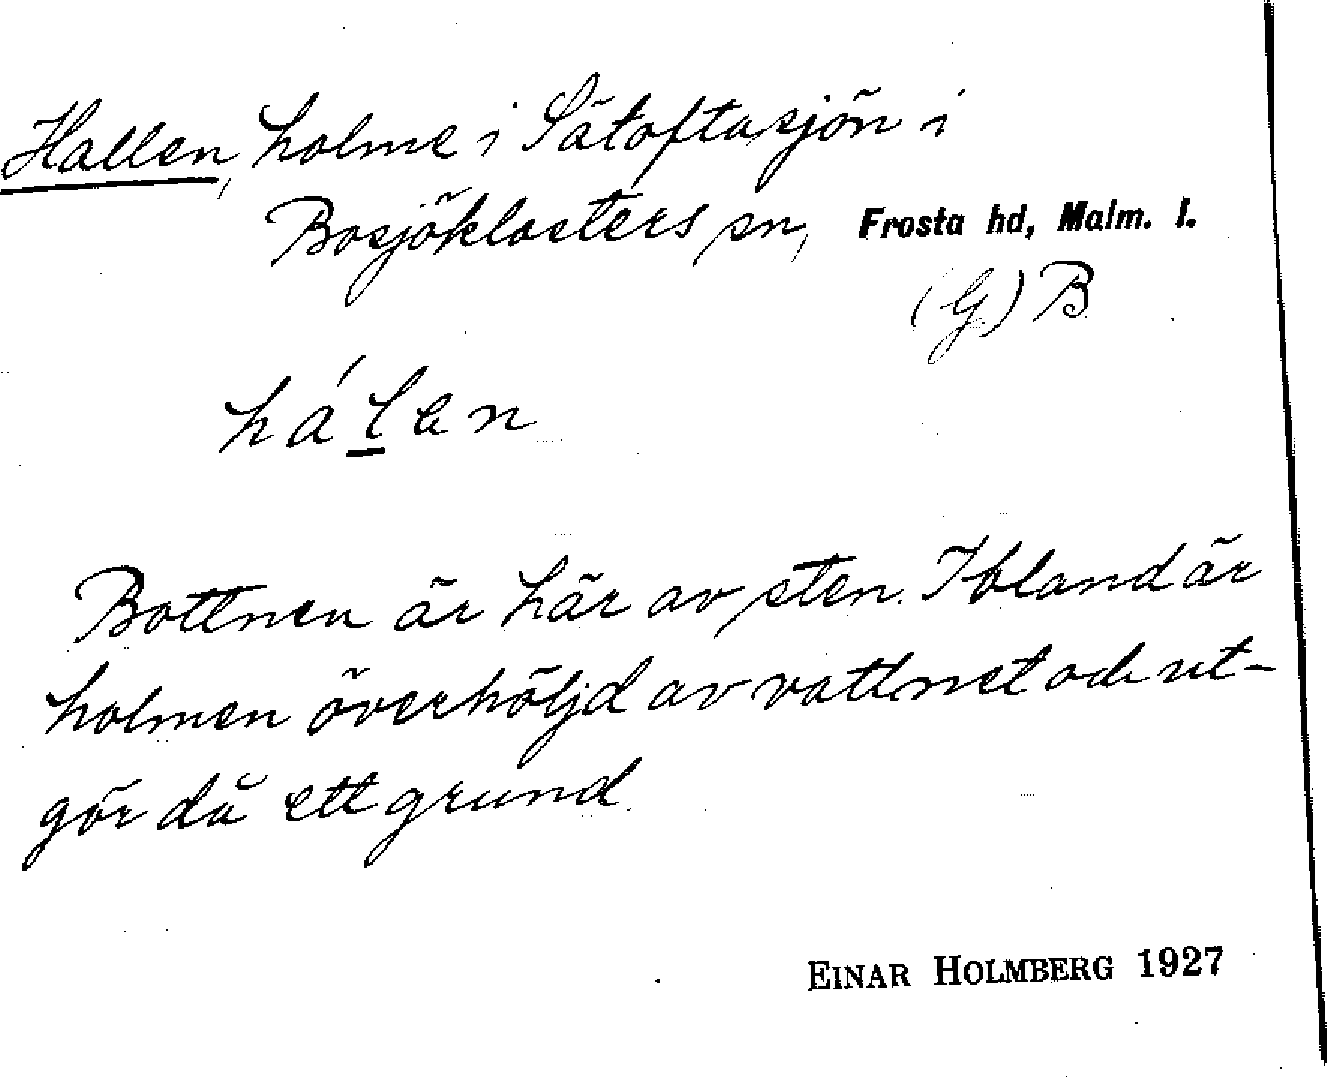 Hallen, holme i Sätoftasjön i
Bosjöklosters sn, Frosta hd, Malm. l.
(G) B
hálen
Bottnen är här av sten. Ibland är
holmen överhöljd av vattnet och ut-
gör då ett grund.
EINAR HOLMBERG 1927